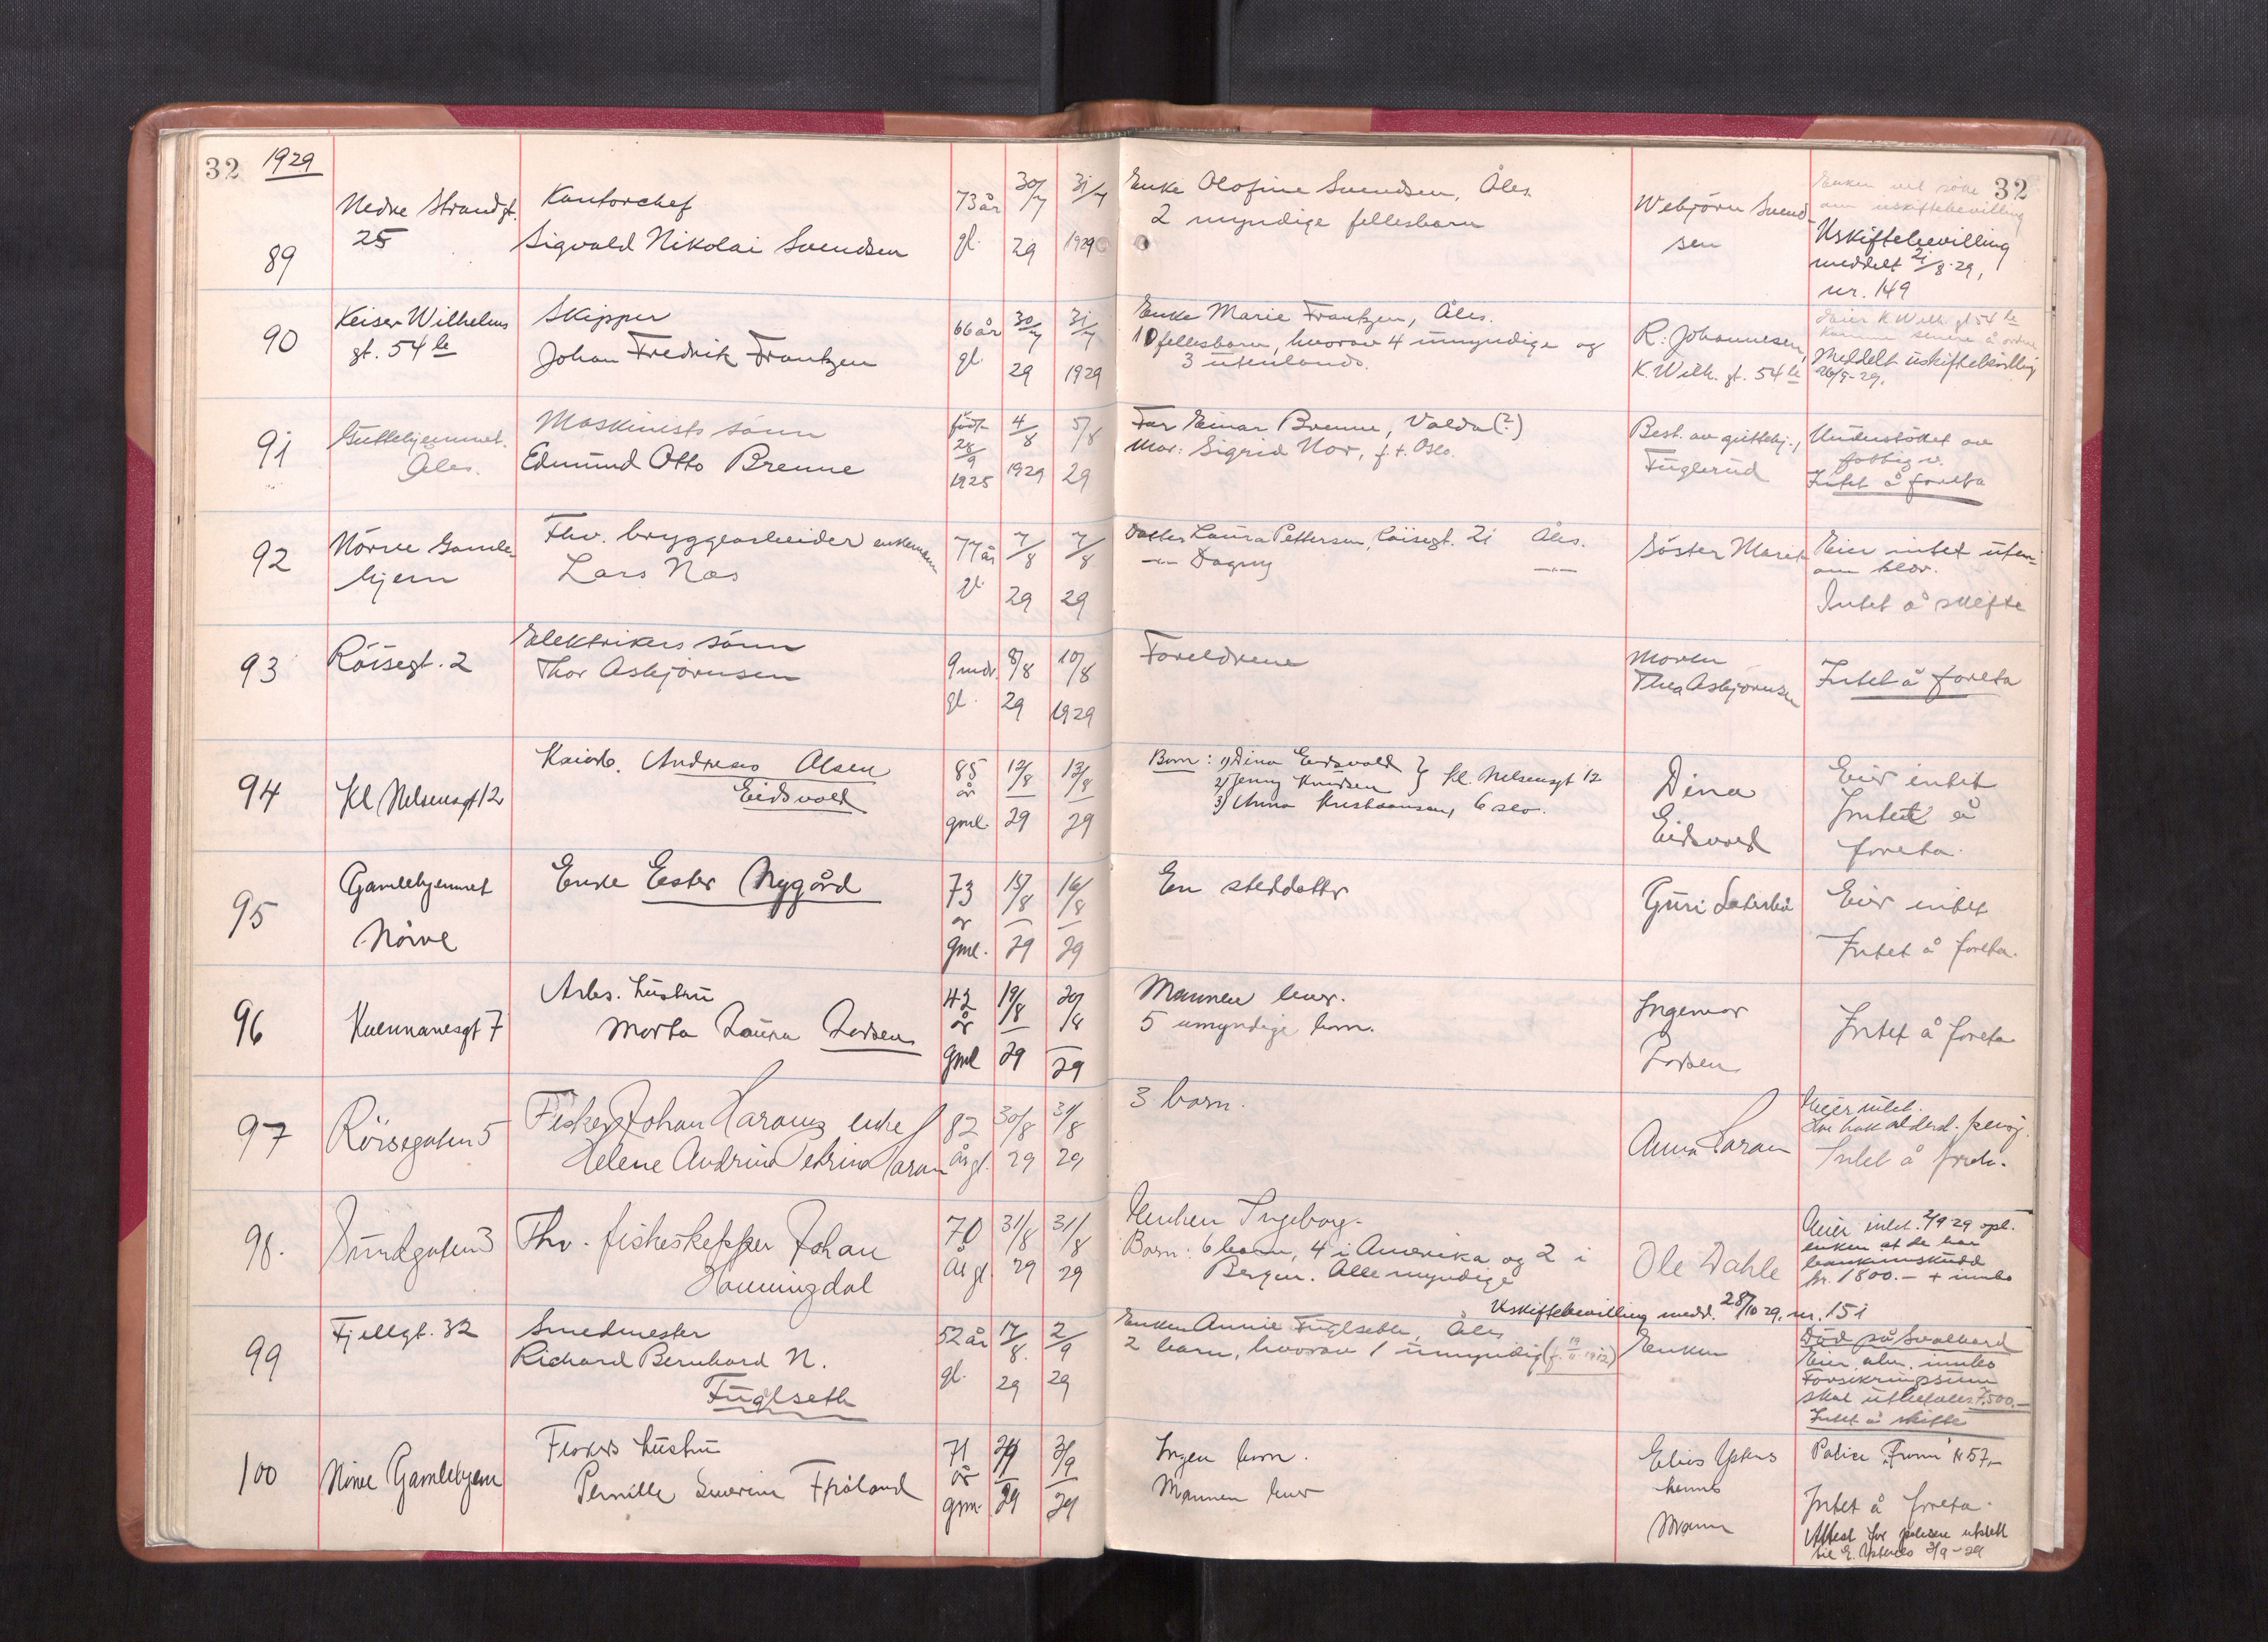 32 1929
32
89
Nedre Strandgt.
25
Kontorchef
Sigvald Nikolai Svendsen
73 år
gl.
30/7
29
31/7
1929
Enke Olofine Svendsen, Åles.
2 myndige fellesbarn
Webjörn Svend-
sen
Enken vil söke
om uskiftebevilling
Uskiftebevilling
meddelt 21/8-29,
nr. 149
90
Keiser Wilhelms
gt. 54 b
Skipper
Johan Fredrik Frantzen
66 år
gl
30/7
29
31/7
1929
Enke Marie Frantzen, Åles.
10 fellesbarn, hvorav 4 umyndige og
3 utenlands.
R. Johannesen,
K. Wilh. gt. 54 b
Eier K. Wilh. gt 54 b
senere å ordne
Meddelt uskiftebevilling
26/9-29.
91
Guttehjemmet.
Åles.
Maskinists sönn
Edmund Otto Brenne
född
28/9
1925
4/8
1929
5/8
29
Far Einar Brenne, Valda (?)
Mor: Sigrid Nor, f. t. Oslo.
Best. av guttehj.,
Fuglerud
Understöttet av
fattigv.
Intet å foreta
92
Nörve Gamle-
hjem
Fhv. bryggearbeider enkemann
Lars Nos
77 år
gl.
7/8
29
7/8
29
Datter Laura Pettersen, Röisegt. 21 Åles.
-"- Dagny -"-
Söster Marit
Eier intet uten-
om klær.
Intet å skifte
93
Röisegt. 2
Elektrikers sönn
Thor Asbjörnsen
9 mdr.
gl.
8/8
29
10/8
1929
Foreldrene
Moren
Thea Asbjörnsen
Intet å foreta
94
Kl. Nelsensgt 12
Kaiarb. Andreas Olsen
Eidsvold
85
år
gml.
12/8
29
13/8
29
Barn: 1) Dina Eidsvold
2) Jenny Knudsen } Kl. Nelsensgt 12
3) Anna Kristiansen, Oslo.
Dina
Eidsvold
Eier intet
Intet å
foreta.
95
Gamlehjemmet
Nörve
Enke Ester Nygård
73
år
gml.
15/8
29
16/8
29
En steddatter
Guri
Eier intet
Intet å foreta.
96
Kvennanesgt 7
Arbs. hustru
Marta Laura Larsen
42
år
gml
19/8
29
20/8
29
Mannen lever.
5 umyndige barn.
Ingemar
Larsen
Intet å foreta
97
Röisegaten 5
Fisker Johan Harams enke
Helene Andrina Petrina Haram
82
år gl.
30/8
29
31/8
29
3 barn.
Anna Haram
Eier intet.
Intet å foreta.
98.
Sundgaten 3
Fhv. fiskeskipper Johan
Honningdal
70
år gl.
31/8
29
31/8
29
Enken Ingeborg.
Barn: 6 barn, 4 i Amerika og 2 i
Bergen. Alle myndige
Ole Dahle
Eier intet. 2/9 29 opl.
enken at de har
bankinnskudd
kr. 1800.- + innbo
Uskiftebevilling medd. 28/10 29, nr. 151
99
Fjellgt. 32
Smedmester
Richard Bernhard N.
Fuglseth
52 år
gl.
17/8.
29
2/9
29
Enken Annie Fuglseth, Åles
2 barn, hvorav 1 umyndig (f. 19/11 1912)
Enken
Död på Svalbard
Eier alm. innbo
Forsikringssum
skal utbetales 7.500.-
Intet å skifte
100
Nörve Gamlehjem
Fiskers hustru
Pernille Severine Fröland
71
år
gml.
29
3/9
29
Ingen barn.
Mannen lever
hennes
Mann
Police "Fram" kr 57,-
Intet å foreta.
Attest for polisen utstedt
til E. 3/9-29